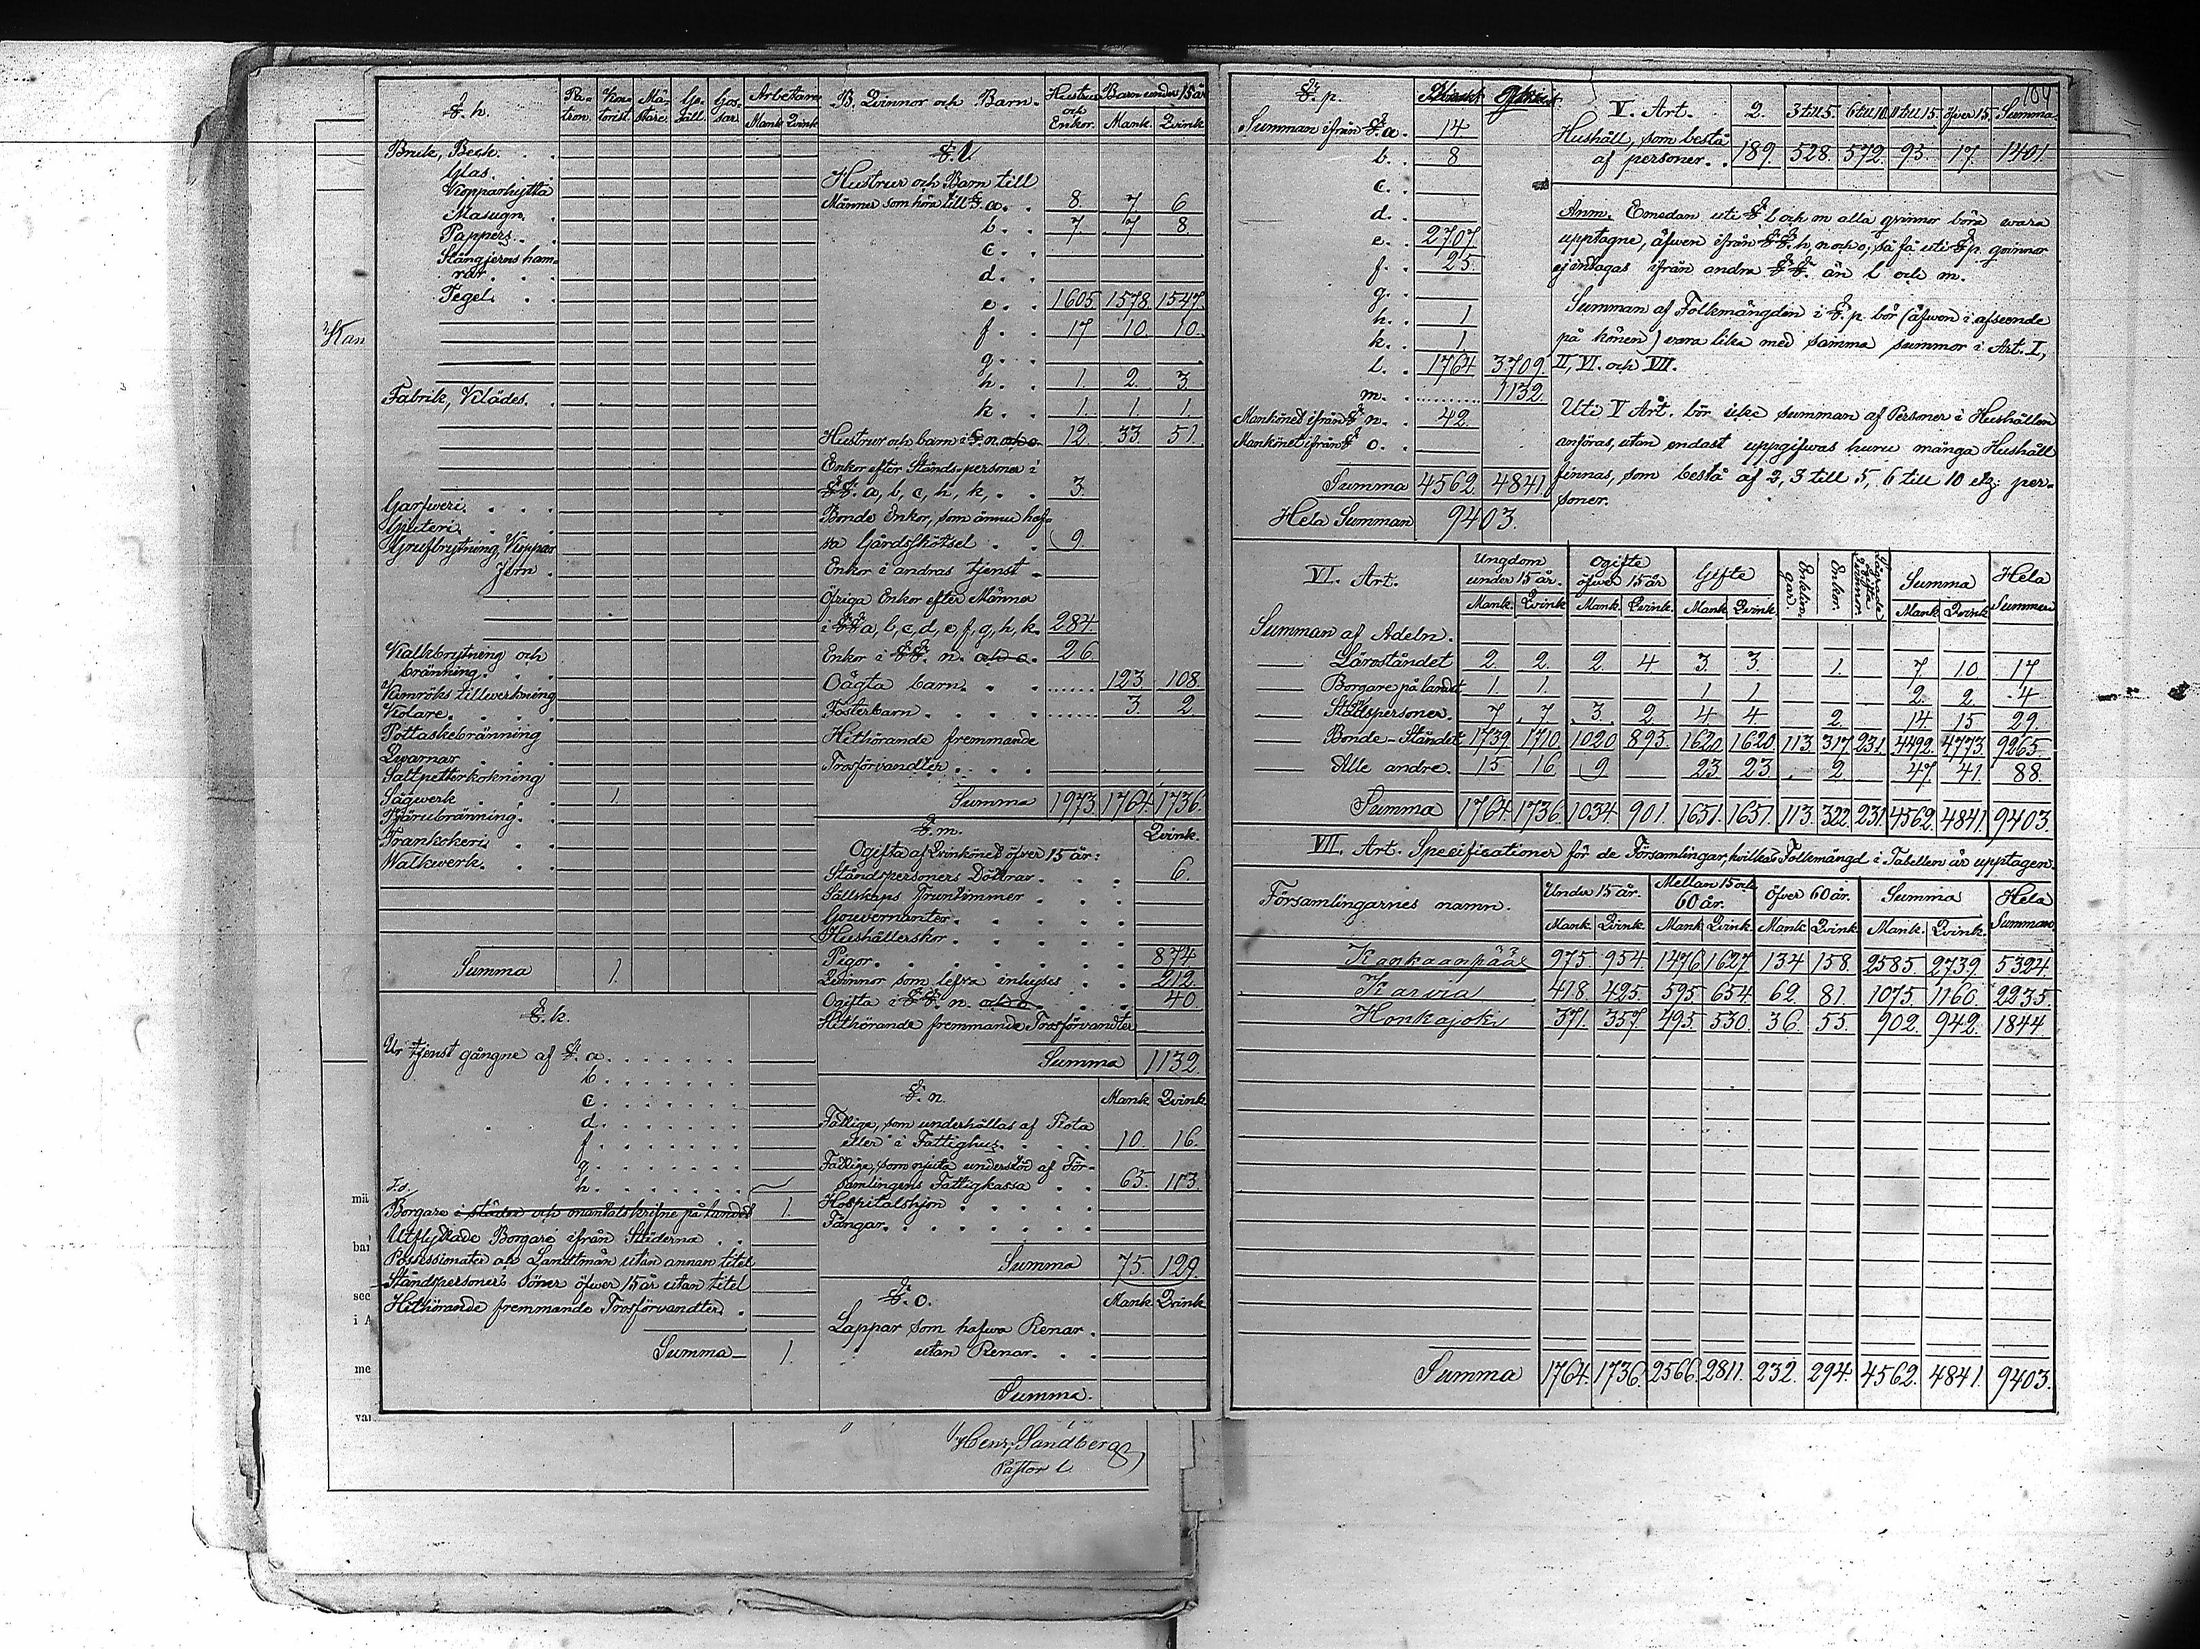 §. h. Pa-tron. Kon-torist. Mä-stare. Ge-säll. Gos-sar. Arbettare Mank. Qvink.
Bruk, Beck.
Glas.
Kopparhytta
Masugn.
Pappers.
Stångjerns ham-
rar.
Tegel.
Fabrik, Klädes.
Garfweri.
Gjuteri.
Grufbrytning, Koppar
Jern.
Kalkbrytning och
bränning.
Kimröks tillverkning
Kolare.
Pottaskebränning
Qvarnar
Saltpetterkokning
Sågwerk 1.
Tjärubränning.
Trankokeri.
Walkwerk.
Summa 1.
§. k.
Ur tjenst gångne af §. a.
b.
c.
d.
f.
g.
h.
F.d.
Borgare i städer och mantalskrifne på landet 1.
Utflyttade Borgare ifrån Städerna
Possessionater och Landtmän utan annan titel
Ståndspersoners Söner öfwer 15 år utan titel
Hithörande fremmande Trosförvandter.
Summa 1.
B. Qvinnor och Barn. Hustrur och Enkor. Barn under 15 år Mank. Qvink.
§. l.
Hustrur och Barn till
Männer som höra till §. a. 8. 7 6
b. 7. 7 8
c.
d.
e. 1605 1578 1547.
f. 17 10. 10.
g.
h. 1. 2. 3
k. 1. 1. 1
Hustrur och barn i §. n. och o. 12 33. 51.
Enkor efter Stånds-personer i
§§. a, b, c, h, k, 3.
Bonde Enkor, som ännu haf-
va Gårdsskötsel 9.
Enkor i andras tjenst
Öfriga Enkor efter Männer
i §§ a, b, c, d, e, f, g, h, k. 284.
Enkor i §§. n. och o. 26.
Oägta barn. 123 108
Fosterbarn. 3. 2
Hithörande fremmande
Trosförvandter
Summa 1973 1764 1736.
§. m. Qvink.
Ogifta af Qvinkönet öfver 15 år:
Ståndspersoners Döttrar. 6.
Sällskaps Fruntimmer
Gouvernanter.
Hushållerskor.
Pigor. 874
Qvinnor som lefva inhyses 212.
Ogifta i §§. n. och o. 40
Hithörande fremmande Trosförvandter
Summa 1132
§. n. Mank. Qvink.
Fattige, som underhållas af Rota
eller i Fattighus. 10. 16.
Fattige, som njuta understöd af För-
samlingens Fattigkassa 65. 113.
Hospitalshjon
Fångar.
Summa 75. 129.
§. o. Mank. Qvink.
Lappar som hafwa Renar.
utan Renar.
Summa.
Henr. Sandberg
Pastor l.
§. p. Mank. Qvink.
Summan ifrån §. a. 14
b. 8
c.
d.
e. 2707
f. 25.
g.
h. 1
k. 1
l. 1764 3709.
m. 1132.
Mankönet ifrån § n. 42.
Mankönet ifrån § o.
Summa 4562. 4841.
Hela Summan 9403.
V. Art. 2. 3 till 5. 6 till 10. 11 till 15. öfver 15. Summa.
Hushåll, som bestå
af personer. 189. 528. 572. 95. 17. 1401.
Anm. Emedan uti § l och m alla qvinnor böra wara
upptagne, äfwen ifrån §§. h, n och o; så få uti § p. qvinnor
ej indtagas ifrån andra §§. än l och m.
Summan af Folkmängden i §. p. bör (äfwen i afseende
på könen) vara lika med samma summor i Art. I,
II, VI. och VII.
Uti V Art. bör icke summan af Personer i Hushållen
anföras, utan endast uppgifwas huru många Hushåll
finnas, som bestå af 2, 3 till 5, 6 till 10 etz. per-
soner.
VI. Art. Ungdom under 15 år. Ogifte öfwer 15 år Gifte Enklin-gar. Enkor. Lägrade ogifta Qvinnor. Summa Hela Summan
Mank. Qvink. Mank. Qvink. Mank. Qvink. Mank. Qvink.
Summan af Adeln.
Läroståndet 2. 2. 2. 4 3. 3. 1. 7. 10. 17
Borgare på landet 1. 1. 1 1 2. 2. 4
Ståndspersoner. 7 7. 3. 2 4. 4 2. 14. 15 29.
Bonde-Ståndet 1739. 1710. 1020 895. 1620. 1620. 113. 317. 231. 4492. 4773. 9265.
Alle andre. 15 16 9 23. 23 2. 47. 41. 88.
Summa 1764. 1736. 1034 901. 1651. 1651. 113. 322. 231. 4562. 4841. 9403.
VII. Art. Specificationer för de Församlingar, hvilkas Folkmängd i Tabellen är upptagen.
Församlingarnes namn. Under 15 år. Mellan 15 och 60 år. Öfver 60 år. Summa Hela Summan
Mank. Qvink. Mank. Qvink. Mank. Qvink. Mank. Qvink.
Kankaanpää 975 954. 1476. 1627. 134 158. 2585. 2739. 5324.
Karvia 418. 425. 595. 654 62. 81. 1075. 1160. 2235.
Honkajoki 371. 357. 495. 530. 36. 55. 902. 942. 1844
Summa 1764. 1736. 2566. 2811. 232. 294. 4562. 4841. 9403.